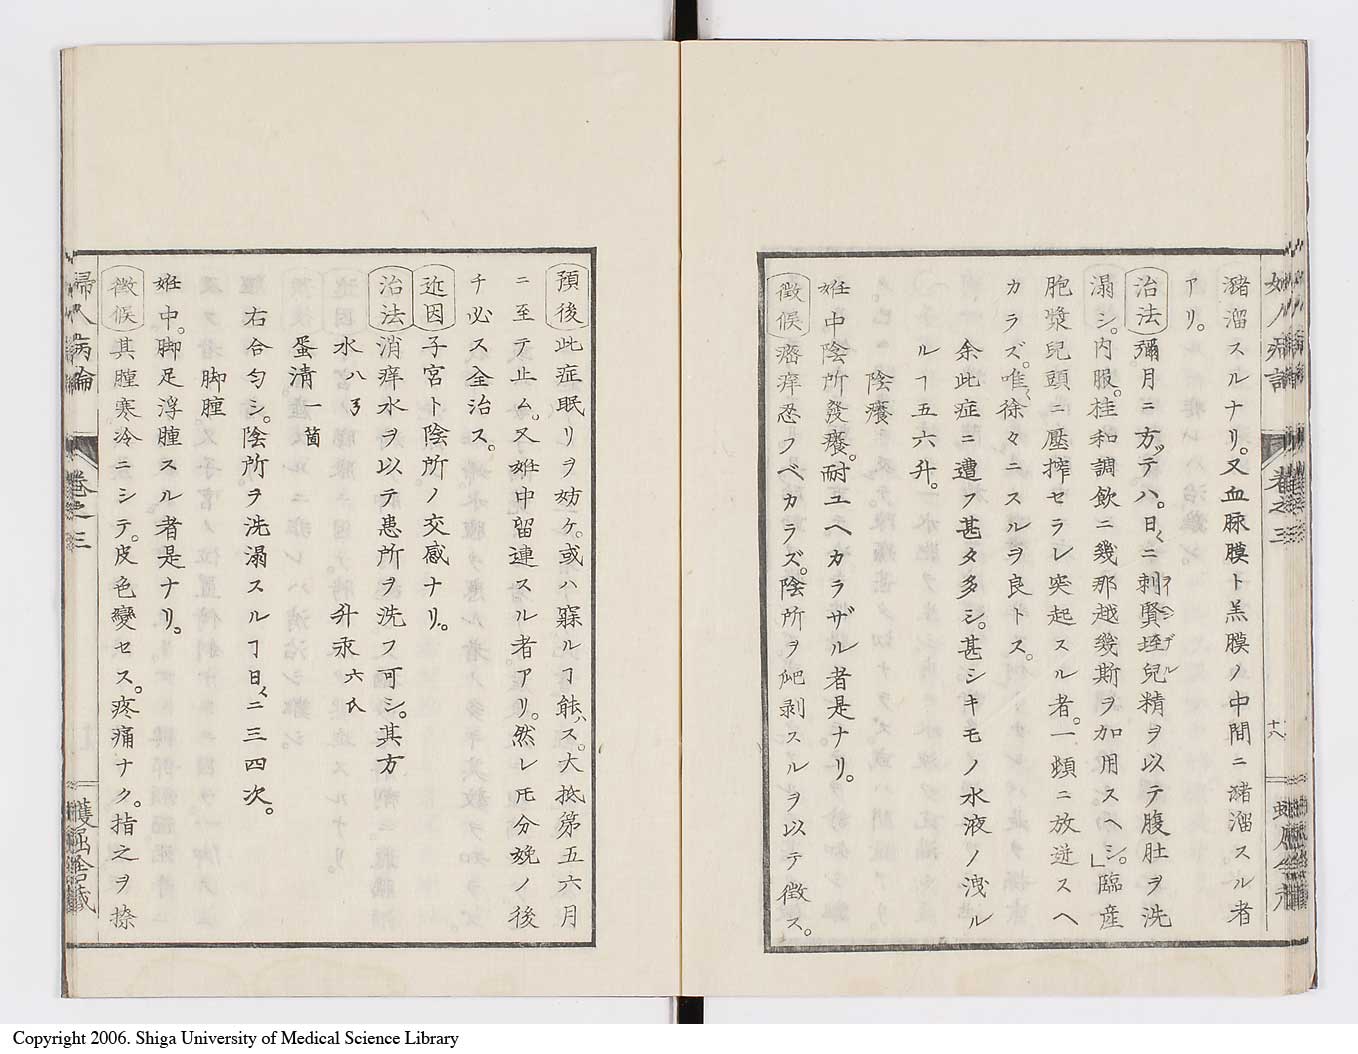 瀦溜スルナリ。又血脉膜ト羔膜ノ中間ニ瀦溜スル者
アリ。
治法 彌月ニ方ッテハ。日々ニ刺賢垤兒精ヲ以テ腹肚ヲ洗
溻シ。内服。桂和調飲ニ幾那越幾斯ヲ加用スヘシ。」臨産
胞漿兒頭ニ壓搾セラレ突起スル者。一頓ニ放迸スヘ
カラズ。唯々徐々ニスルヲ良トス。
余此症ニ遭フ甚タ多シ。甚シキモノ水液ノ洩ル
ルヿ五六升。
陰癢
姙中陰所發癢。耐ユヘカラザル者是ナリ。
徴候 瘙痒忍フベカラズ。陰所ヲ爬剥スルヲ以テ徴ス。
十八
預後 此症眠リヲ妨ケ。或ハ寐ルヿ能ハス。大抵第五六月
ニ至テ止ム。又姙中留連スル者アリ。然レ𪜈分娩ノ後
チ必ス全治ス。
近因 子宮ト陰所ノ交感ナリ。
治法 消痒水ヲ以テ患所ヲ洗フ可シ。其方
水 八弓 升汞 六氏
蛋清 一箇
右合匀シ。陰所ヲ洗溻スルヿ日々ニ三四次。
脚腫
姙中。脚足浮腫スル者是ナリ。
徴候 其腫寒冷ニシテ。皮色變セス。疼痛ナク。指之ヲ捺
婦人病論 卷之三
Copyright 2006. Shiga University of Medical Science Library